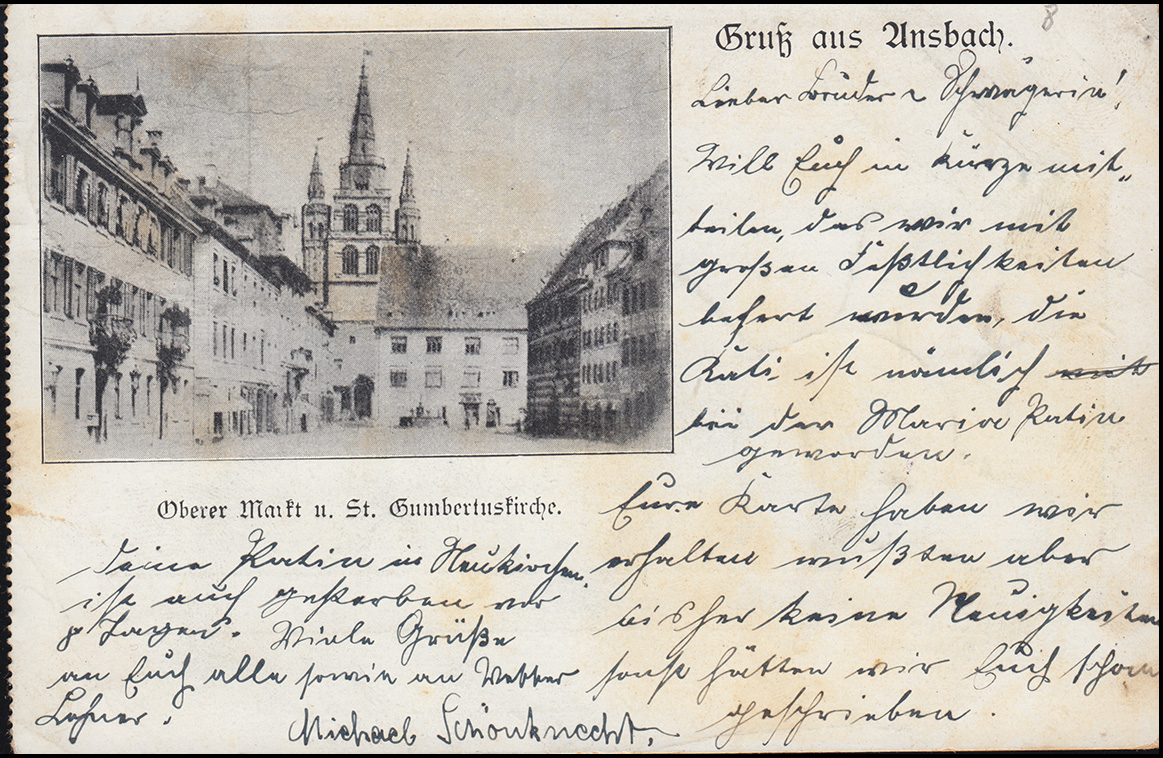 8
Gruß aus Ansbach.
Lieber Bruder u Schwägerin!
Will Euch in Kürze mit„
teilen, das wir mit
großen Feßtlichkeiten
beehrt wurden, die
Kati ist nämlich mit
bei der Maria Patin
geworden.
Oberer Markt u. St. Gumbertuskirche.
Eure Karte haben wir
erhalten wußten aber
bisher keine Neuigkeiten
sonst hätten wir Euch schon
geschrieben.
deine Patin in Neukirchen
ist auch gestorben vor
8 Tagen. Viele Grüße
an Euch alle sowie an Vetter
Lehner.
Michael Schönknecht.